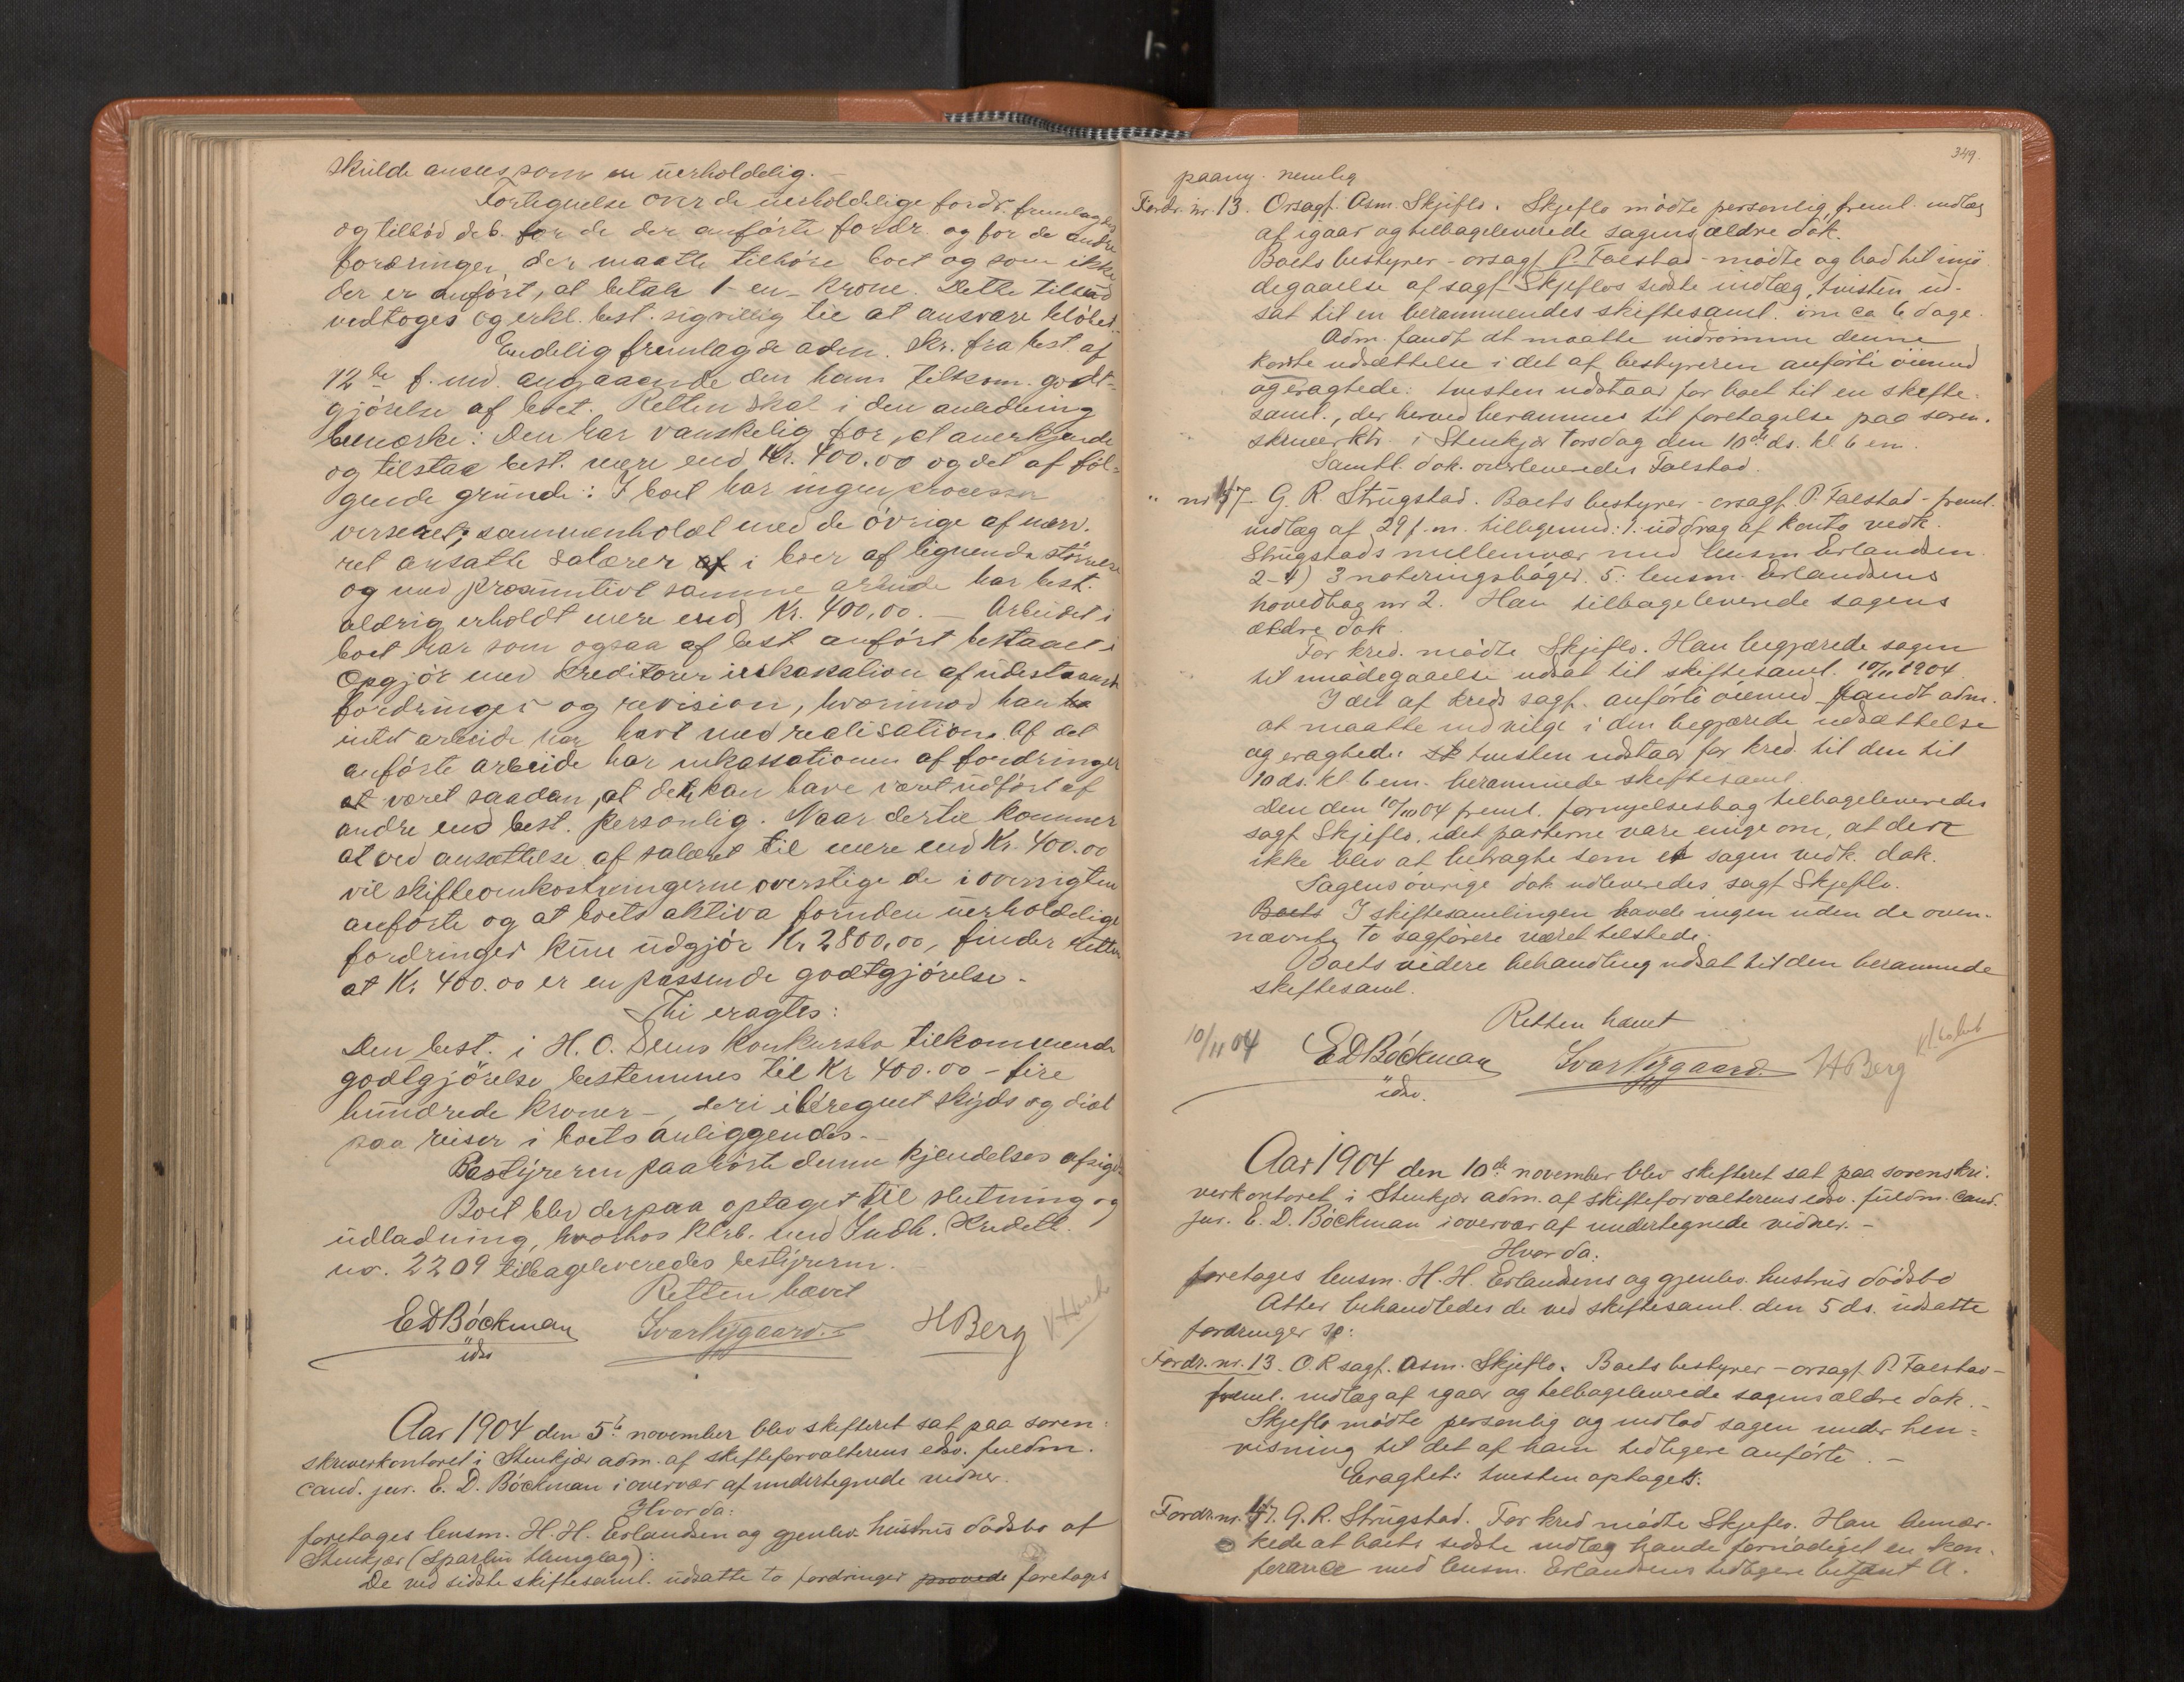 skulde ansees som en uerholdelig. -
Fortegnelse over de uerholdelige fordr. fremlagdes
og tilbød deb. for de der anførte fordr. og for de andre
fordringer, der maatte tilhøre boet og som ikke
der er anført, at betale 1 - en - Krone. Dette tilbud
vedtoges og erkl. best. sig villig til at ansvare beløbet.
Endelig fremlagde adm. skr. fra best. af
12te f. md. angaaende den ham tilkom. godt-
gjørelse af boet. Retten skal i den anledning
bemærke: Den har vanskelig for, at anerkjende
og tilstaa best. mere end Kr. 400.00 og det af føl-
gende grunde: I boet har ingen processer
verseret; sammenholdt med de øvrige af nærv.
ret ansatte salærer i boer af lignende størrelse
og med præsumtivt samme arbeide har best.
aldrig erholdt mere end Kr. 400.00. - Arbeidet i
boet har som ogsaa af best. anført bestaaet i
Opgjør med Kreditorer inkassation af udestaaende
fordringer og revision, hvorimod han
intet arbeide har havt med realisation. Af det
anførte arbeide har inkassationen af fordringer
været saadan, at det kan have været udført af
andre end best. personlig. Naar dertil kommer
at ved ansættelse af salæret til mere end Kr. 400.00
vil skifteomkostningerne overstige de i oversigten
anførte og at boets aktiva foruden uerholdelige
fordringer kun udgjør Kr 2800,00, finder retten
at Kr. 400.00 er en passende godtgjørelse -
Thi eragtes:
Den best. i H. O. Konkursbo tilkommende
godtgjørelse bestemmes til Kr 400.00 - fire
hundrede kroner -, deri iberegnet skyds og diæt
paa reiser i boets anliggender. -
Bestyreren paahørte denne kjendelses afsigelse
Boet blev derpaa optaget til slutning og
udladning, kvothos Klrb. med Indh. Kredell.
no. 2209 tilbageleveredes bestyreren.
Retten hævet
EDBøckman Ivar Nygaard. HBerg
edsv
Aar 1904 den 5te november blev skifteret sat paa soren-
skriverkontoret i Stenkjær adm. af skifteforvalterens edsv. fuldm.
cand. jur. E. D. Bøckman i overvær af undertegnede vidner.
Hvor da:
foretages lensm. H. H. Erlandsen og gjenlev. hustrus dødsbo af
Stenkjær (Sparbu thinglag):
De ved sidste skiftesaml. udsatte to fordringer provede foretages
349.
paany. nemlig
Fordr. nr. 13. Orsagf. Asm. Skjeflo. Skjeflo mødte personlig, freml. indlæg
af igaar og tilbageleverede sagens ældre dok.
Boets bestyrer - orsagf P. Falstad - mødte og bad til imø
degaaelse af sagf Skjeflos sidste indlæg, tvisten ud-
sat til en berammendes skiftesaml. om ca 6 dage.
Adm. fandt at maatte indrømme denne
korte udsættelse i det af bestyreren anførte øiemed
og eragtede: tvisten udstaar for boet til en skifte-
saml., der herved berammes til foretagelse paa soren-
skriverktr. i Stenkjær torsdag den 10de ds. kl. 6 em.
Samtl. dok. overleveredes Falstad.
" nr 47 - G. R. Strugstad. Boets bestyrer - orsagf. P. Falstad - freml.
indlæg af 29 f. m. tilligemed: 1. uddrag af konto vedk.
Strugstads mellemvær med lensm Erlandsen.
2-4) 3 noteringsbøger. 5: lensm. Erlandsens
hovedbog nr 2. Han tilbageleverede sagens
ældre dok.
For kred. mødte Skjeflo. Han begjærede sagen
til imødegaaelse udsat til skiftesaml. 10/11 1904.
I det af kreds sagf. anførte øiemed fandt adm.
at maatte indvilge i den begjærede udsættelse
og eragtede: tvisten udstaar for kred. til den til
10 ds. kl. 6 em. berammede skiftesaml.
Den den 10/10 04 freml. fornyelsesbog tilbageleveredes
sagf. Skjeflo, idet parterne vare enige om, at den
ikke blev at betragte som et sagen vedk. dok.
Sagens øvrige dok udleveredes sagf Skjeflo.
Boets I skiftesamlingen havde ingen uden de oven-
nævnte to sagførere været tilstede.
Boets videre behandling udsat til den berammede
skiftesaml.
Retten hævet
10/11 04 EDBøckman Ivar Nygaard HBerg
edsv.
Aar 1904 den 10de november blev skifteret sat paa sorenskri-
verkontoret i Stenkjær adm. af skifteforvalterens edsv. fuldm. cand.
jur. E. D. Bøckman i overvær af undertegnede vidner. -
Hvor da:
foretages lensm. H. H. Erlandsens og gjenlev. hustrus dødsbo
Atter behandledes de ved skiftesaml. den 5 ds. udsatte
fordringer sp:
Fordr. nr. 13. O.R sagf. Asm. Skjeflo. Boets bestyrer - orsagf. P. Falstad -
freml. indlæg af igaar og tilbageleverede sagens ældre dok. -
Skjeflo mødte personlig og indlod sagen under hen-
visning til det af ham tidligere anførte. -
Eragtet: tvisten optages.
Fordr. nr. 47. G. R. Strugstad. For kred mødte Skjeflo. Han bemær-
kede at boets sidste indlæg havde fornødiget en kon-
ferance med lensm. Erlandsens tidligere betjent A.